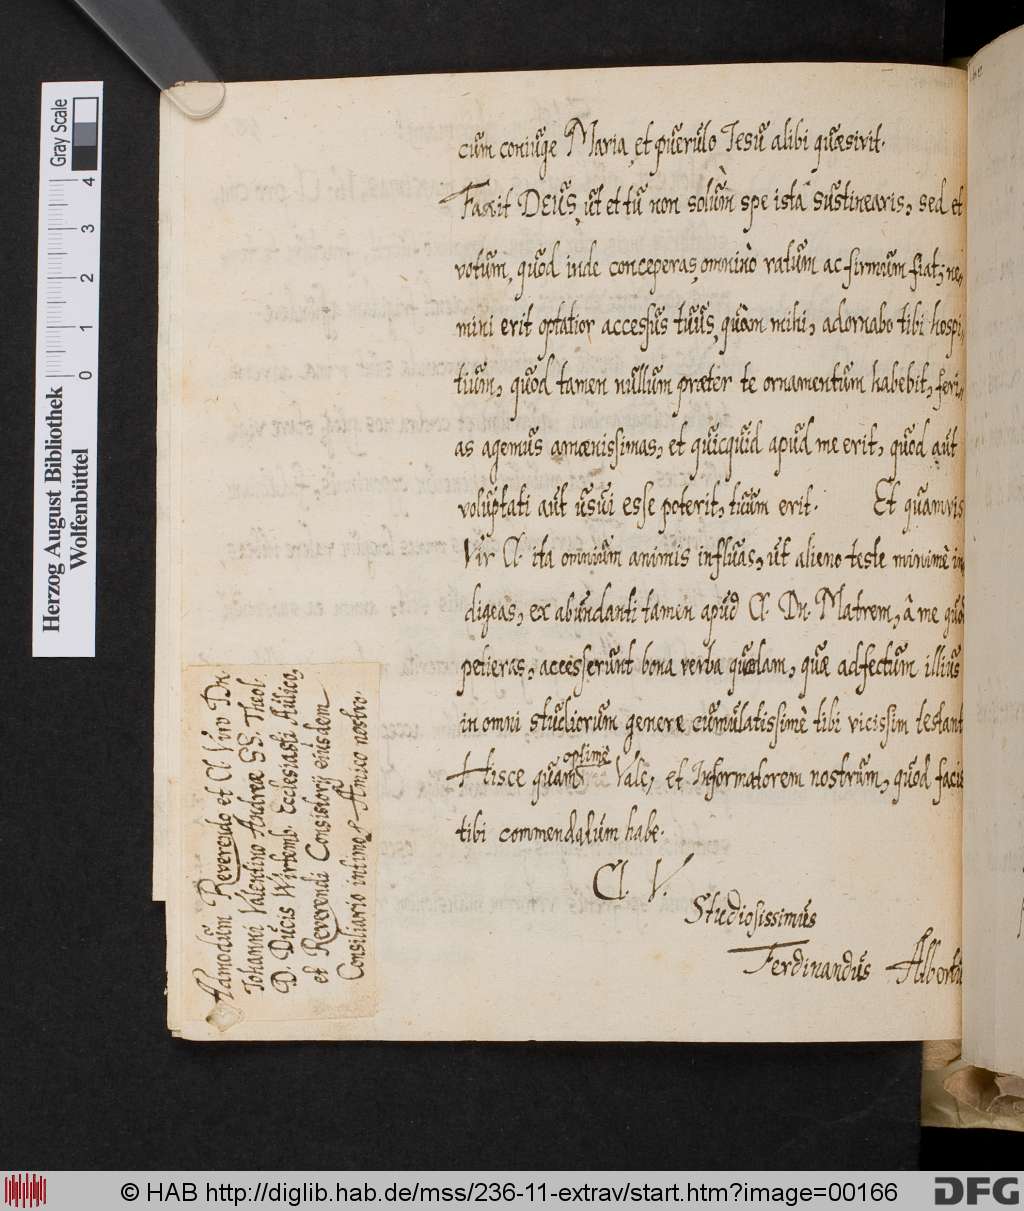 cum coniuge Maria, et puerulo Jesu alibi quæsivit.
Faxit DEUS, ut et tu non solùm spe istâ sustinearis, sed et
votum, quod inde conceperas, omninò ratum ac firmum fiat; ne-
mini erit optatior accessus tuus, quàm mihi, adornabo tibi hospi-
tium, quod tamen nullum præter te ornamentum habebit, feri-
as agemus amœnissimas, et quicquid apud me erit, quod aut
voluptati aut usui esse poterit, tuum erit. Et quamvis
Vir Cl. ita omnium animis influas, ut alieno teste minimè in-
digeas, ex abundanti tamen apud Cl. Dn. Matrem, â me quod
petieras, accesserunt bona verba quædam, quæ adfectum illius
in omni studiorum genere cumulatissimè tibi vicissim testant
Hisce quàm optimè Vale, et Informatorem nostrum, quod facis
tibi commendatum habe.
Cl. V.
Studiosissimus
Ferdinandus Albertus
Admodùm Reverendo et Cl. Viro Dn.
Johanni Valentino Andreæ SS. Theol.
D. Ducis Wirtemb. Ecclesiasti Aulico,
et Reverendi Consistorij eiusdem
Consiliario intimo, Amico nostro.
Herzog August Bibliothek
Wolfenbüttel
Gray Scale
0 1 2 3 4
© HAB http://diglib.hab.de/mss/236-11-extrav/start.htm?image=00166
DFG